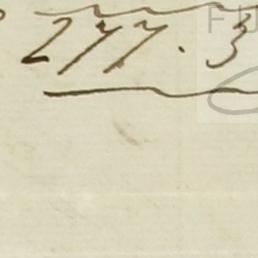 277. 3
FU